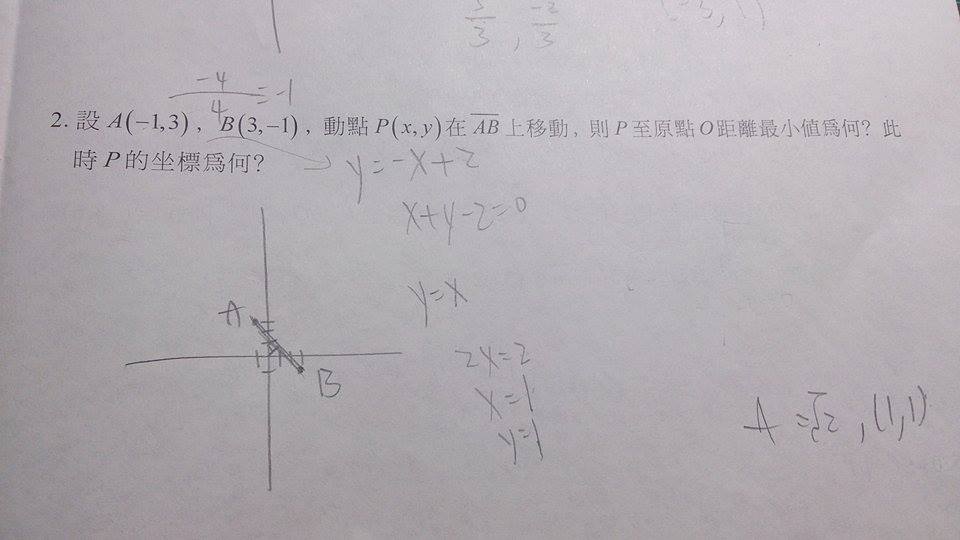 -4/4 = -1
2. 設 A(-1,3), B(3,-1), 動點 P(x,y) 在 \overline{AB} 上移動, 則 P 至原點 O 距離最小值爲何? 此
時 P 的坐標爲何?
→ y=-x+2
x+y-2=0
y=x
A
2x=2
B
x=1
y=1
A = √2, (1,1)